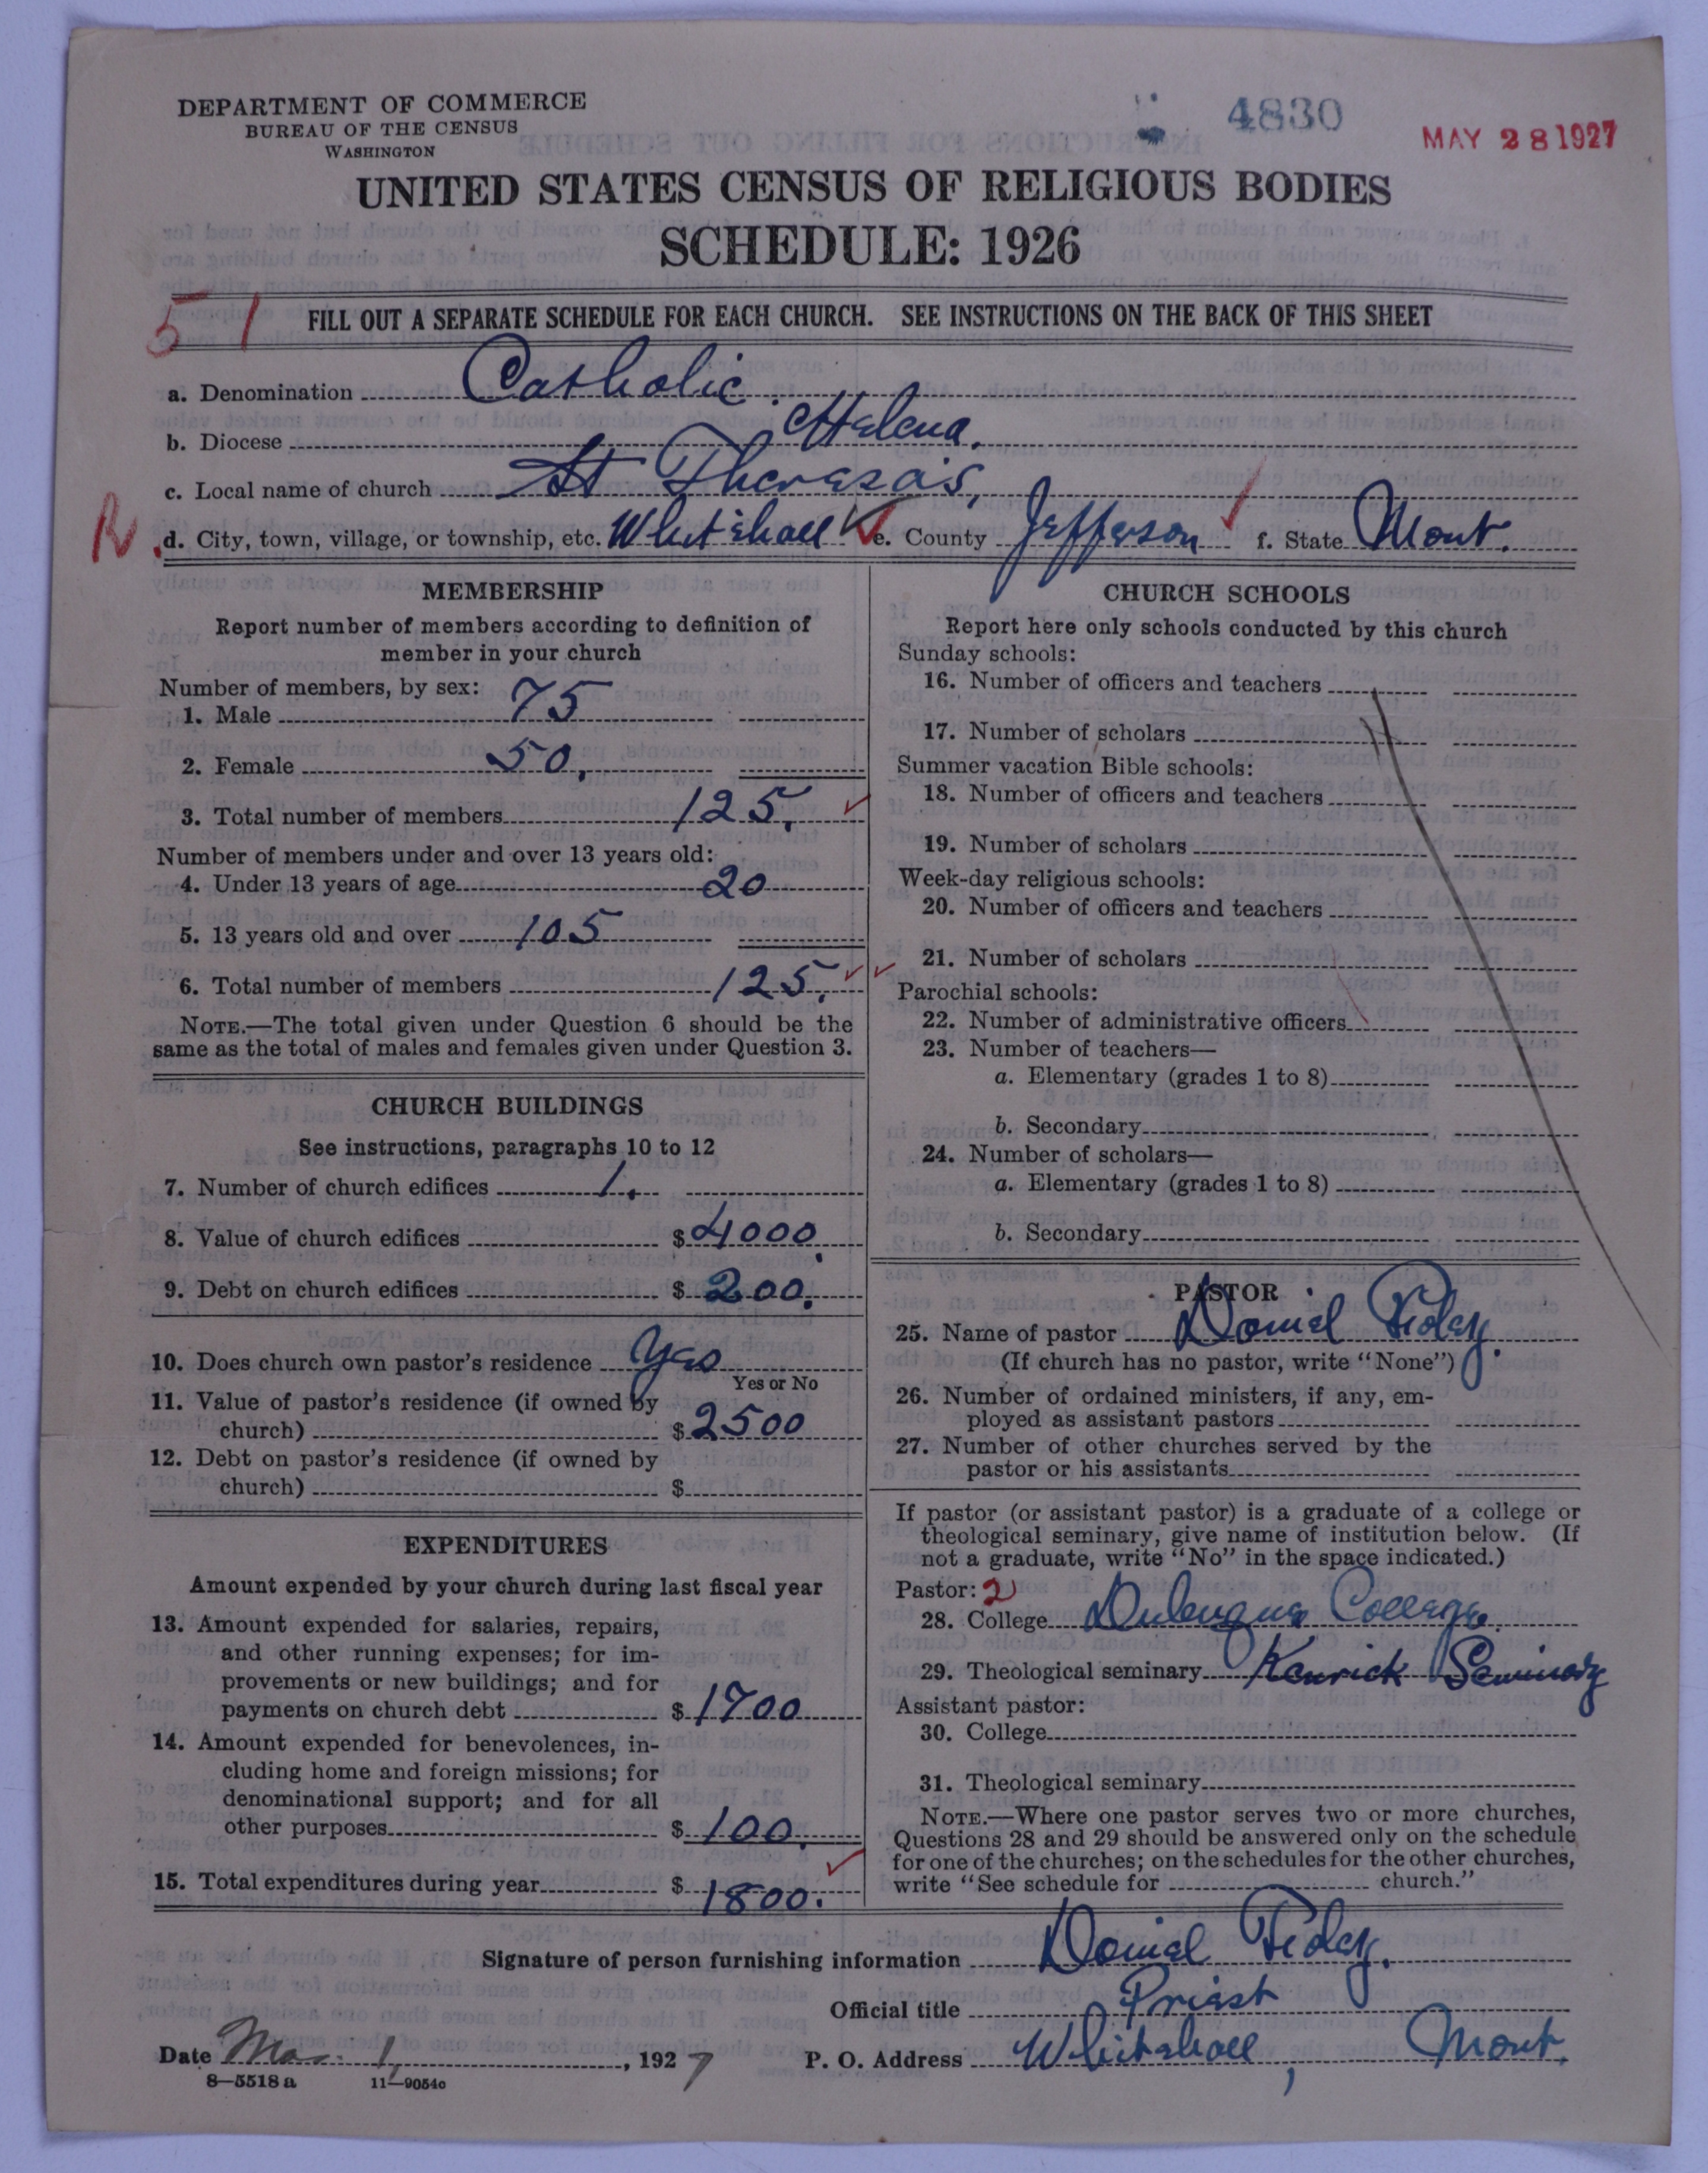 DEPARTMENT OF COMMERCE
BUREAU OF THE CENSUS
WASHINGTON
4830
MAY 28 1927
UNITED STATES CENSUS OF RELIGIOUS BODIES
SCHEDULE: 1926
5 1
FILL OUT A SEPARATE SCHEDULE FOR EACH CHURCH. SEE INSTRUCTIONS ON THE BACK OF THIS SHEET
a. Denomination Catholic.
b. Diocese Helena.
c. Local name of church St Theresa's,
R d. City, town, village, or township, etc. Whitehall e. County Jefferson f. State Mont.
MEMBERSHIP
Report number of members according to definition of
member in your church
Number of members, by sex:
1. Male 75
2. Female 50.
3. Total number of members 125.
Number of members under and over 13 years old:
4. Under 13 years of age 20
5. 13 years old and over 105
6. Total number of members 125.
NOTE.—The total given under Question 6 should be the
same as the total of males and females given under Question 3.
CHURCH BUILDINGS
See instructions, paragraphs 10 to 12
7. Number of church edifices 1.
8. Value of church edifices $4000.
9. Debt on church edifices $200.
10. Does church own pastor's residence Yes
Yes or No
11. Value of pastor's residence (if owned by
church) $2500
12. Debt on pastor's residence (if owned by
church) $
EXPENDITURES
Amount expended by your church during last fiscal year
13. Amount expended for salaries, repairs,
and other running expenses; for im-
provements or new buildings; and for
payments on church debt $1700
14. Amount expended for benevolences, in-
cluding home and foreign missions; for
denominational support; and for all
other purposes $100.
15. Total expenditures during year $1800.
CHURCH SCHOOLS
Report here only schools conducted by this church
Sunday schools:
16. Number of officers and teachers
17. Number of scholars
Summer vacation Bible schools:
18. Number of officers and teachers
19. Number of scholars
Week-day religious schools:
20. Number of officers and teachers
21. Number of scholars
Parochial schools:
22. Number of administrative officers
23. Number of teachers—
a. Elementary (grades 1 to 8)
b. Secondary
24. Number of scholars—
a. Elementary (grades 1 to 8)
b. Secondary
PASTOR
25. Name of pastor Daniel
(If church has no pastor, write "None")
26. Number of ordained ministers, if any, em-
ployed as assistant pastors
27. Number of other churches served by the
pastor or his assistants
If pastor (or assistant pastor) is a graduate of a college or
theological seminary, give name of institution below. (If
not a graduate, write "No" in the space indicated.)
Pastor: 2
28. College Dubuque College.
29. Theological seminary Kenrick Seminary
Assistant pastor:
30. College
31. Theological seminary
NOTE.—Where one pastor serves two or more churches,
Questions 28 and 29 should be answered only on the schedule
for one of the churches; on the schedules for the other churches,
write "See schedule for church."
Signature of person furnishing information Daniel
Official title Priest
Date Mar. 1, 1927 P. O. Address Whitehall, Mont.
8—5518a 11—9054c